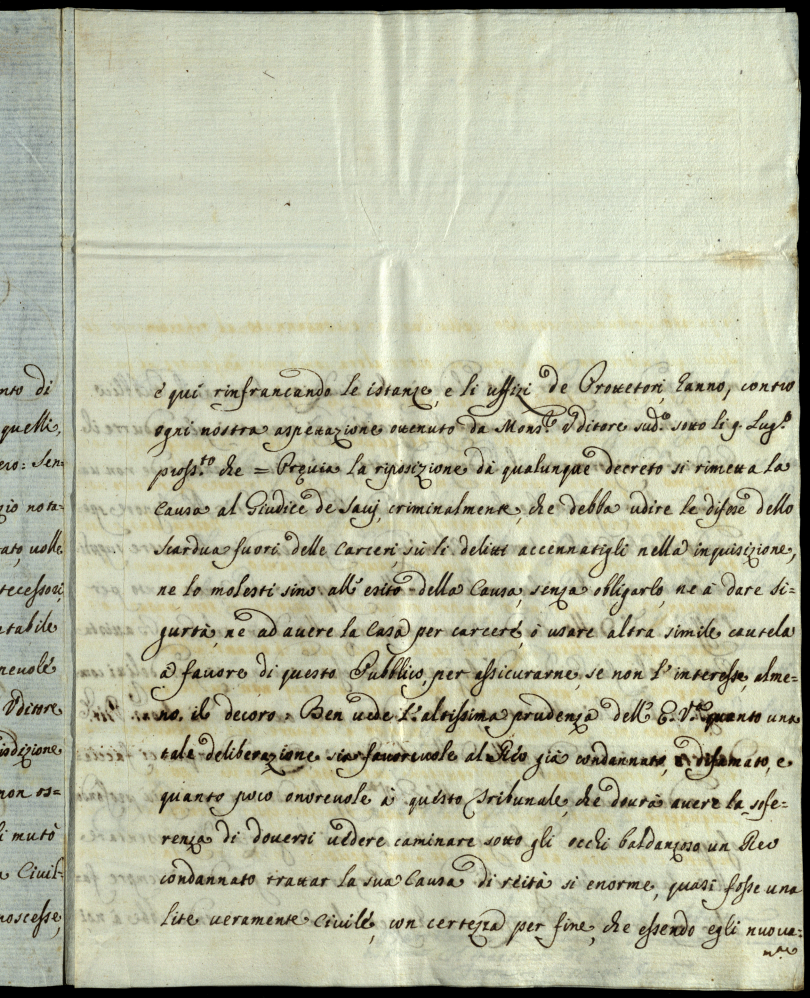 nto di
quelli,
ero: Sen-
zio nota-
ato, volle
tecessori,
ntabile
nevole
Vditore
isdizione
non os=
li mutò
a Civil-
noscesse,
è qui rinfrancando le istanze, e li uffizi de Proueтori, hanno, contro
ogni nostra aspettazione ottenuto da Mons.r Vditore sud.o sotto li 9. Lug.o
pross.to che = Preuia la riposizione di qualunque decreto si rimetta la
Causa al Giudice de Sauj, criminalmente, che debba udire le difese dello
Scardua fuori delle Carceri, sù li delitti accennatigli nella inquisizione,
ne lo molesti sino all' esito della Causa, senza obligarlo, ne à dare si-
gurtà, ne ad auere la Casa per carcere, ò usare altra simile cautela
à fauore di questo Pubblico, per assicurarne, se non l' interesse, alme-
no il decoro: Ben uede l' altissima prudenza dell' E. V. quanto una
tale deliberazione sia fauoreuole al Reo già condannato, e disfamato, e
quanto poco onoreuole à questo Tribunale, che dourà auere la sofe-
renza di douersi uedere caminare sotto gli occhi baldanzoso un Reo
condannato trattar la sua Causa di reità si enorme, quasi fosse una
lite ueramente Ciuile, con certezza per fine, che essendo egli nuoua=
m.te